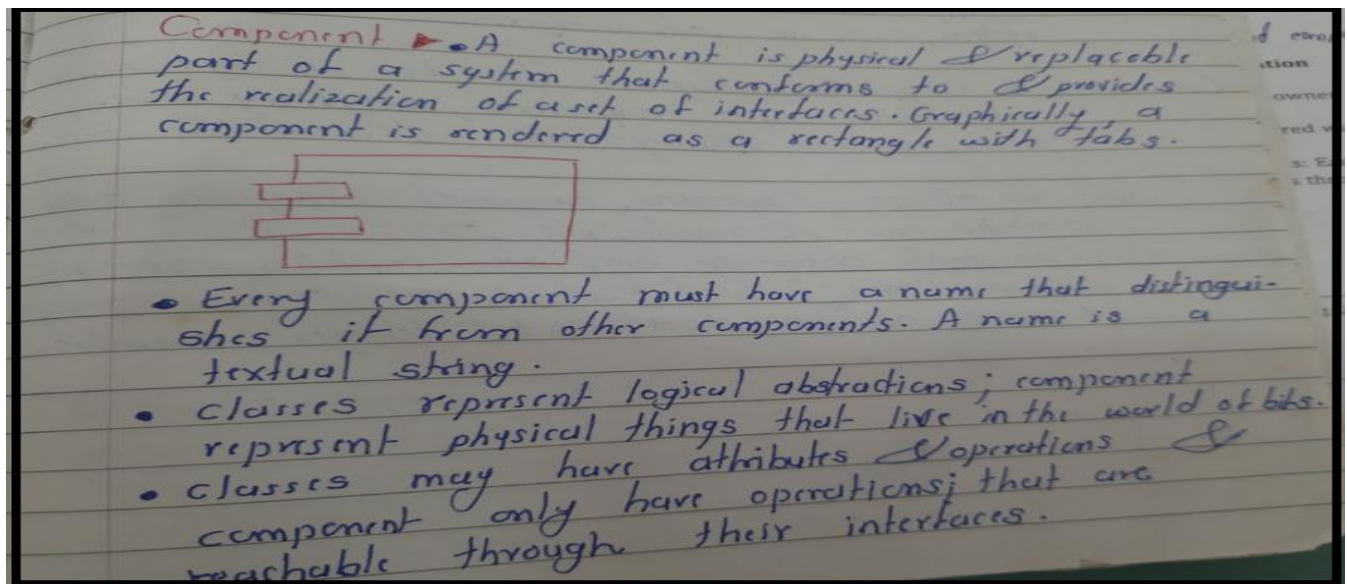 Component ▶ • A component is physical & replaceble
part of a system that conforms to & provides
the realization of a set of interfaces. Graphically, a
component is rendered as a rectangle with tabs.
• Every component must have a name that distingui-
shes it from other components. A name is a
textual string.
• Classes represent logical abstractions; component
represent physical things that live in the world of bits.
• Classes may have attributes & operations &
component only have operations; that are
reachable through their interfaces.
tion
owne
red